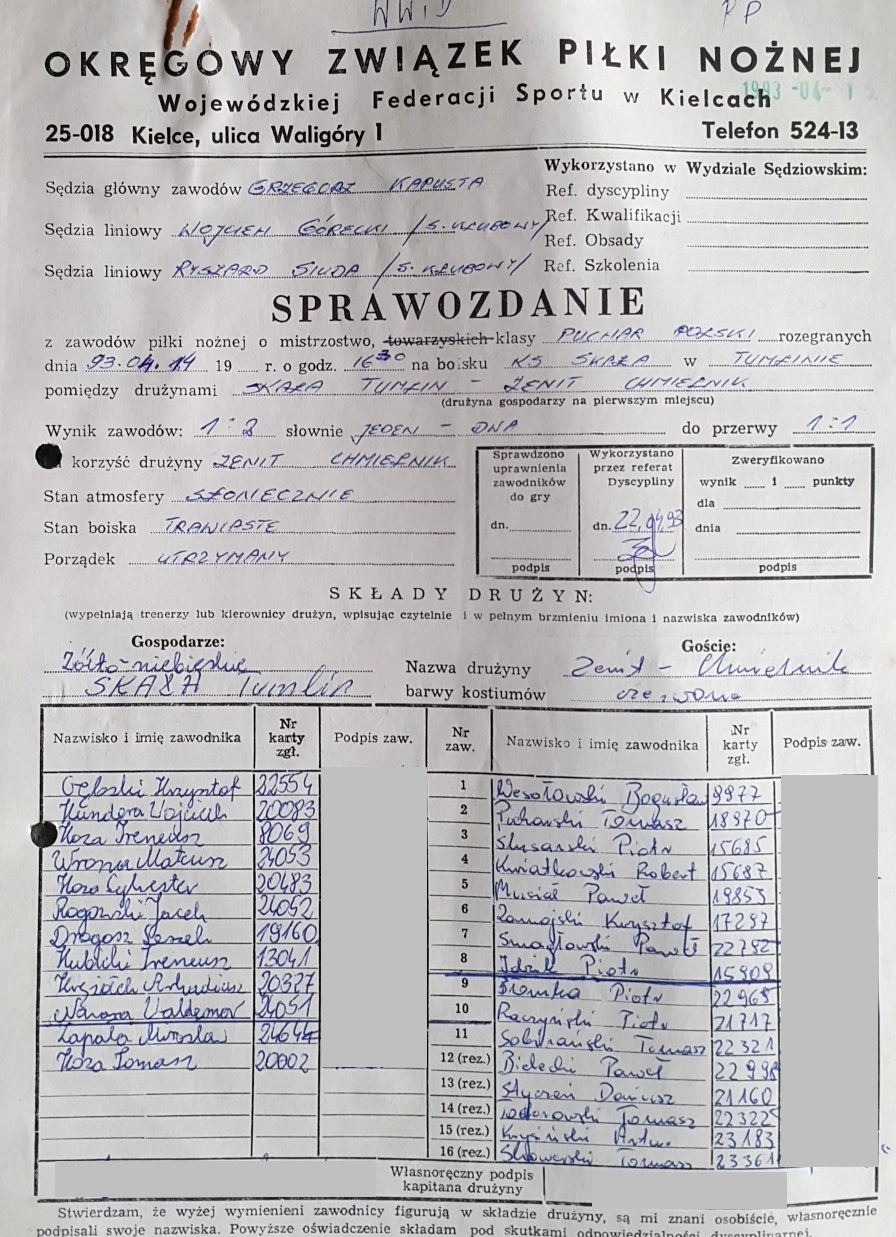 WWiD PP
OKRĘGOWY ZWIĄZEK PIŁKI NOŻNEJ
Wojewódzkiej Federacji Sportu w Kielcach
1993 -04- 1
25-018 Kielce, ulica Waligóry 1 Telefon 524-13
Wykorzystano w Wydziale Sędziowskim:
Sędzia główny zawodów GRZEGORZ KAPUSTA Ref. dyscypliny
Sędzia liniowy WOJCIECH GÓRECKI /S. KLUBOWY/ Ref. Kwalifikacji
Ref. Obsady
Sędzia liniowy RYSZARD SIUDA /S. KLUBOWY/ Ref. Szkolenia
SPRAWOZDANIE
z zawodów piłki nożnej o mistrzostwo, towarzyskich klasy PUCHAR POLSKI rozegranych
dnia 93.04.14 19 r. o godz. 16³⁰ na boisku KS SKAŁA w TUMLINIE
pomiędzy drużynami SKAŁA TUMLIN - ZENIT CHMIELNIK
(drużyna gospodarzy na pierwszym miejscu)
Wynik zawodów: 1:2 słownie JEDEN - DWA do przerwy 1:1
korzyść drużyny ZENIT CHMIELNIK
Stan atmosfery SŁONECZNIE
Stan boiska TRAWIASTE
Porządek UTRZYMANY
Sprawdzono uprawnienia zawodników do gry
dn.
podpis
Wykorzystano przez referat Dyscypliny
dn. 22.04.93
podpis
Zweryfikowano
wynik 1 punkty
dla
dnia
podpis
SKŁADY DRUŻYN:
(wypełniają trenerzy lub kierownicy drużyn, wpisując czytelnie i w pełnym brzmieniu imiona i nazwiska zawodników)
Gospodarze: Goście:
Żółto-niebieskie Nazwa drużyny Zenit - Chmielnik
SKAŁA Tumlin barwy kostiumów czerwone
Nazwisko i imię zawodnika Nr karty zgł. Podpis zaw. Nr zaw. Nazwisko i imię zawodnika Nr karty zgł. Podpis zaw.
Gębski Krzysztof 22554 1 Wesołowski Bogusław 9977
Kundera Wojciech 20083 2 Puchowski Tomasz 18970
Koza Ireneusz 8069 3 Ślusarski Piotr 15685
Wrona Mateusz 24053 4 Kwiatkowski Robert 15687
Koza Sylwester 20483 5 Musiał Paweł 19853
Rogowski Jacek 24052 6 Zamojski Krzysztof 17297
Drogosz Leszek 19160 7 Smagłowski Paweł 22792
Kubicki Ireneusz 13041 8 Idzik Piotr 15909
Krzciuch Arkadiusz 20327 9 Piotr 22965
Waldemar 24051 10 Raczyński Piotr 21717
Zapała Mirosław 24644 11 Sobierański Tomasz 22321
Koza Tomasz 20002 12 (rez.) Bielecki Paweł 22998
13 (rez.) Styczeń Dariusz 21160
14 (rez.) Tomasz 22322
15 (rez.) Krysiński Artur 23183
16 (rez.) Tomasz 23361
Własnoręczny podpis
kapitana drużyny
Stwierdzam, że wyżej wymienieni zawodnicy figurują w składzie drużyny, są mi znani osobiście, własnoręcznie
podpisali swoje nazwiska. Powyższe oświadczenie składam pod skutkami odpowiedzialności dyscyplinarnej.